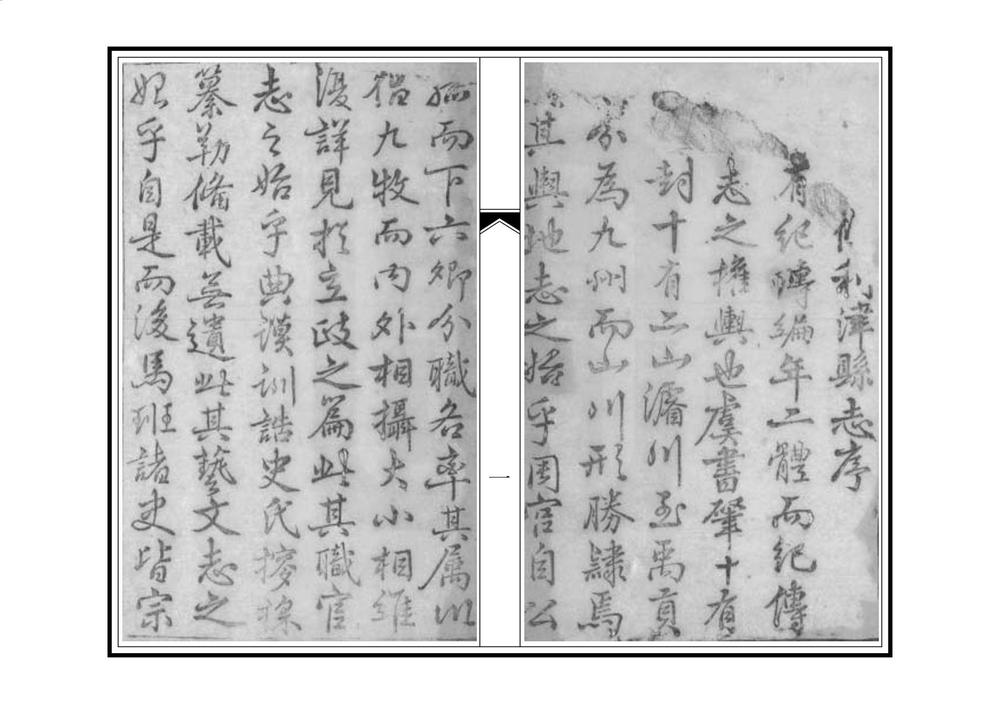 利津縣志序
有紀傳編年二體而紀傳
志之權輿也虞書肇十有
封十有二山濬川至禹貢
分為九州而山川形勝隸焉
其輿地志之始乎周官自公
孤而下六卿分職各率其属以
倡九牧而內外相攝大小相維
復詳見於立政之篇此其職官
志之始乎典謨訓誥史氏
纂勒備載無遺此其藝文志之
始乎自是而後馬班諸史皆宗
一